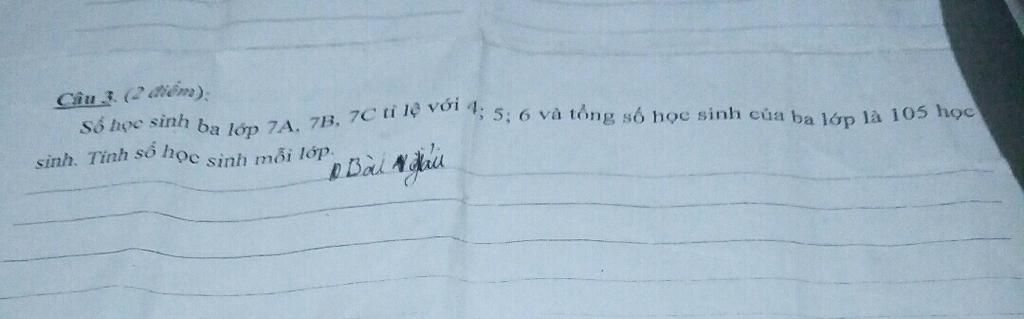 Câu 3. (2 điểm):
Số học sinh ba lớp 7A, 7B, 7C tỉ lệ với 4; 5; 6 và tổng số học sinh của ba lớp là 105 học
sinh. Tính số học sinh mỗi lớp.
Bài giải